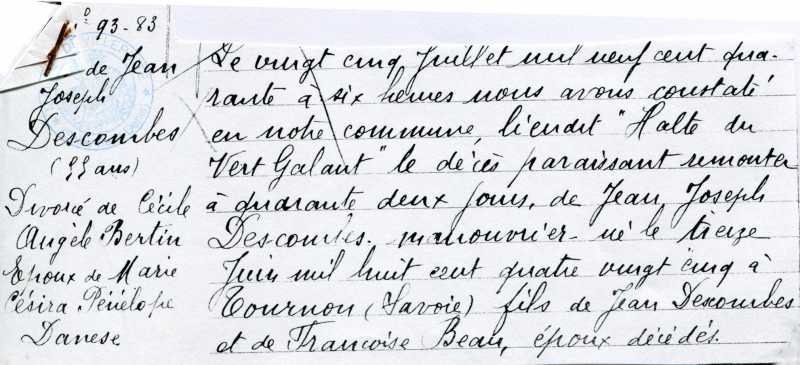 N° 93-83
de Jean
Joseph
Descombes
(55 ans)
Divorcé de Cécile
Angèle Bertin
Epoux de Marie
Césira Pénélope
Danese
Le vingt cinq Juillet mil neuf cent qua-
rante à six heures nous avons constaté
en notre commune, lieudit "Halte du
Vert Galant" le décès paraissant remonter
à quarante deux jours, de Jean, Joseph
Descombes, manouvrier, né le treize
Juin mil huit cent quatre vingt cinq à
Tournon (Savoie) fils de Jean Descombes
et de Françoise Beau, époux décédés.